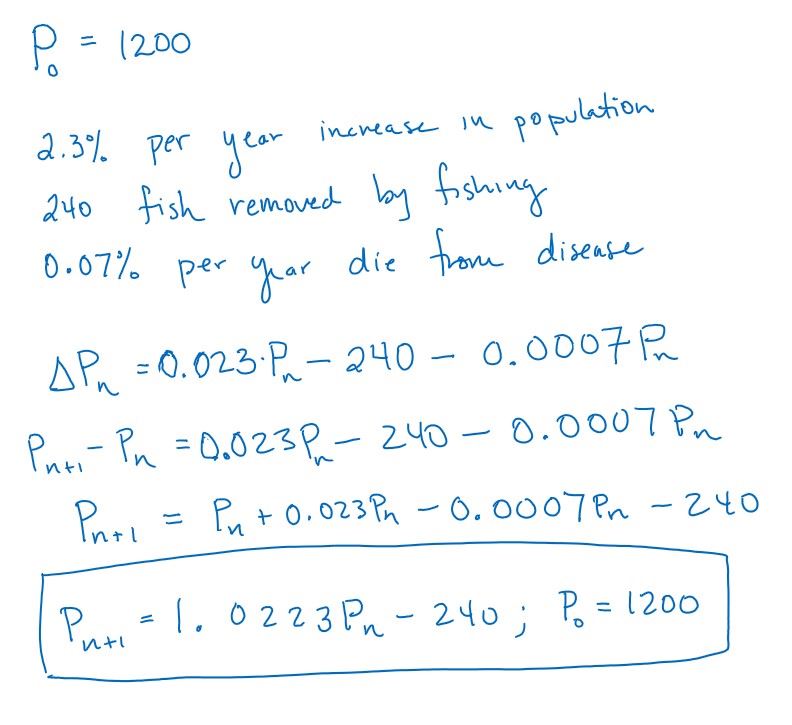 P₀ = 1200
2.3% per year increase in population
240 fish removed by fishing
0.07% per year die from disease
ΔPₙ = 0.023·Pₙ − 240 − 0.0007Pₙ
Pₙ₊₁ − Pₙ = 0.023Pₙ − 240 − 0.0007Pₙ
Pₙ₊₁ = Pₙ + 0.023Pₙ − 0.0007Pₙ − 240
Pₙ₊₁ = 1.0223Pₙ − 240; P₀ = 1200